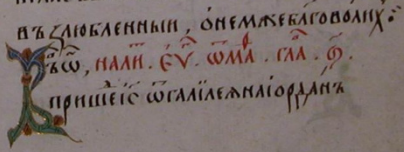 възлюбленныи, ѻнемже благоволихⷪ҇:
Въѡⷩ҇, налиⷮ. еѵⷢ҇. ѿ маⷬ. глаⷡ. ѳ҃.
прїиде і҃с ѿ галілеѧ на іѻрданъ